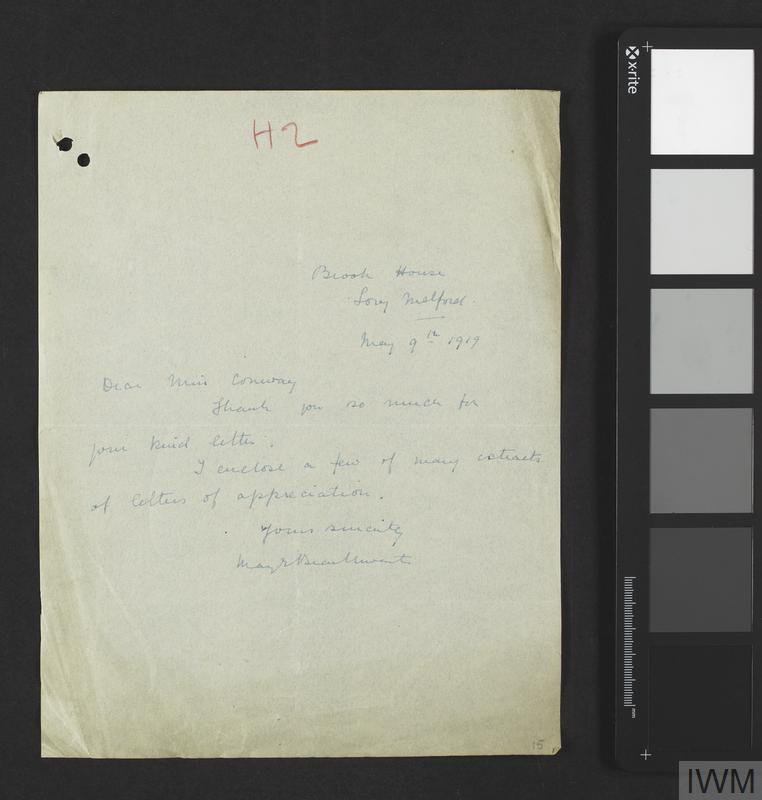 H2
Brook House
Long Melford.
May 9th 1919
Dear Miss Conway
Thank you so much for
your kind letter.
I enclose a few of many extracts
of letters of appreciation.
Yours sincerely
May
15
x·rite
mm
IWM